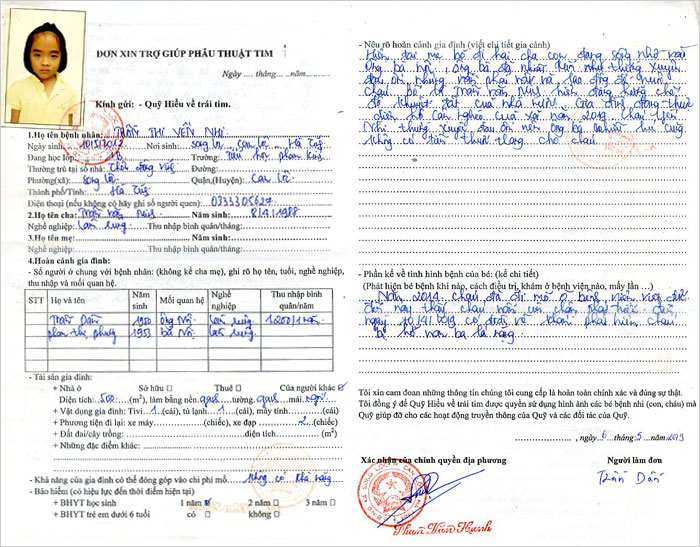 ĐƠN XIN TRỢ GIÚP PHẪU THUẬT TIM
Ngày .... tháng .... năm........
Kính gửi: - Quỹ Hiểu về trái tim.
1.Họ tên bệnh nhân: TRẦN THỊ YẾN NHI
Ngày sinh: 10/5/2012 Nơi sinh: song lộc Can lộc Hà Tĩnh
Đang học lớp: 1B Trường: Tiểu học
Thường trú tại số nhà: Đường:
Phường(xã) song lộc Quận,(Huyện): Can lộc
Thành phố/Tỉnh: Hà Tĩnh
Điện thoại (nếu không có hãy ghi số người quen): 0333305627
2.Họ tên cha: Trần văn Năm sinh: 8/4/1988
Nghề nghiệp: Làm ruộng Thu nhập bình quân/tháng:
3.Họ tên mẹ: Năm sinh:
Nghề nghiệp: Thu nhập bình quân/tháng:
4.Hoàn cảnh gia đình:
- Số người ở chung với bệnh nhân: (không kể cha mẹ), ghi rõ họ tên, tuổi, nghề nghiệp,
thu nhập và mối quan hệ.
STT Họ và tên Năm sinh Mối quan hệ Nghề nghiệp Thu nhập bình quân/năm
Trần Dần 1950 ông Nội làm ruộng
phan thị phương 1953 bà Nội làm ruộng
- Tài sản gia đình:
+ Nhà ở Sở hữu Thuê Của người khác
Diện tích: 500 (m²), làm bằng nền gạch tường gạch mái ngói
+ Vật dụng gia đình: Tivi. 1 (cái), tủ lạnh 1 (cái), máy tính (cái)
+ Phương tiện đi lại: xe máy (chiếc), xe đạp 2 (chiếc)
+ Đất đai/cây trồng: diện tích (m²)
+ Những đặc điểm khác:
- Khả năng của gia đình có thể đóng góp vào chi phí mổ không có khả năng
- Bảo hiểm (có hiệu lực đến thời điểm hiện tại)
+ BHYT học sinh 1 năm 2 năm 3 năm
+ BHYT trẻ em dưới 6 tuổi có không
- Nêu rõ hoàn cảnh gia định (viết chi tiết gia cảnh)
Hiện tại mẹ bỏ đi hai cha con đang sống nhờ vào
ông bà nội, ông bà đã nhiều tuổi thường xuyên
đau ốm nhưng vẫn phải
cháu bố là Trần văn hiện đang hưởng chế
độ khuyết tật của nhà nước. Gia đình đang thuộc
diện hộ cận nghèo của xã năm 2019. cháu Yến
Nhi thường xuyên đau ốm nên ông bà
không có tiền thuốc thang cho cháu
- Phần kể về tình hình bệnh của bé: (kể chi tiết)
(Phát hiện bé bệnh khi nào, cách điều trị, khám ở bệnh viện nào, mấy lần …)
Năm 2014 cháu đã đi mổ ở bệnh viện
đến nay thấy cháu vẫn
ngày khám phát hiện cháu
bị hở van ba lá nặng
Tôi xin cam đoan những thông tin chúng tôi cung cấp là hoàn toàn chính xác và đúng sự thật.
Tôi đồng ý để Quỹ Hiểu về trái tim được quyền sử dụng hình ảnh các bé bệnh nhi (con, cháu) mà
Quỹ giúp đỡ cho các hoạt động truyền thông của Quỹ và các đối tác của Quỹ.
ngày 6 tháng 5 năm 2019
Xác nhận của chính quyền địa phương Người làm đơn
Trần Dần
Phan Văn Huynh